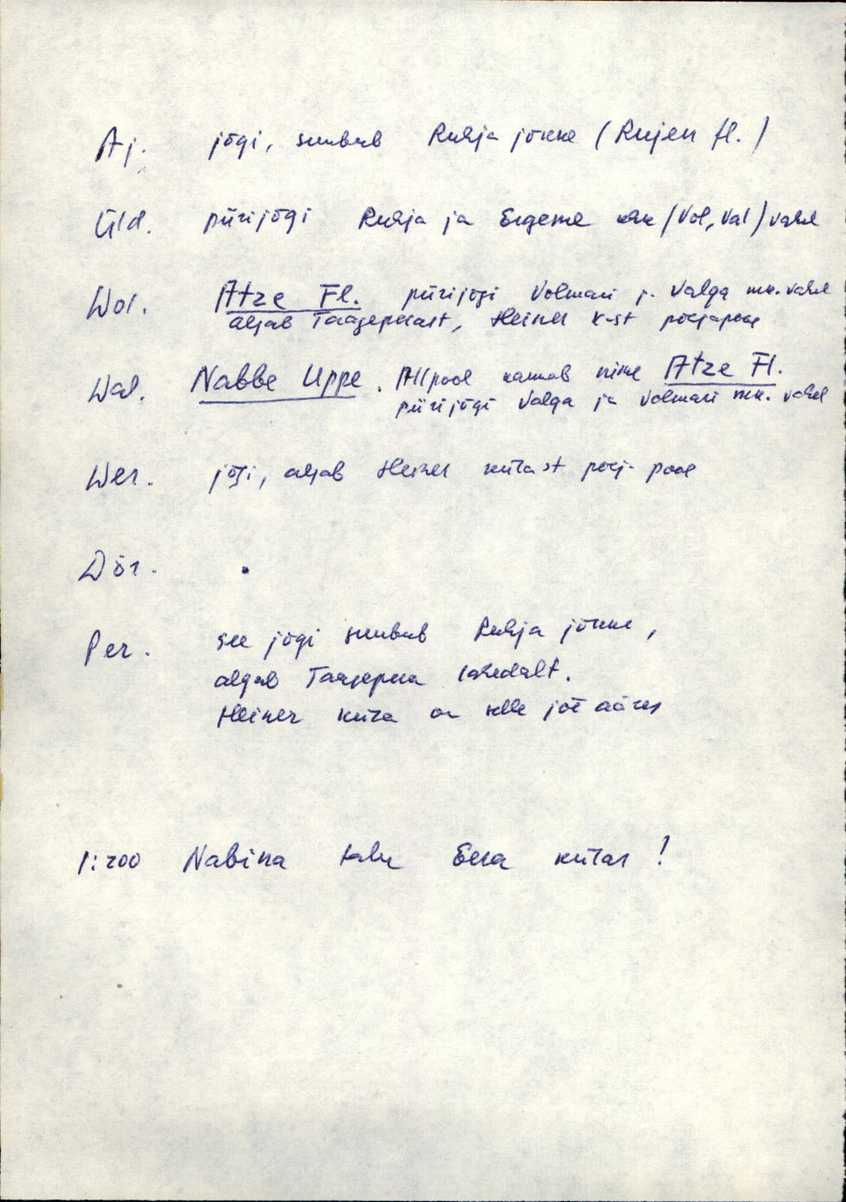 Aj. jõgi, suubub Ruhja jõkke (Rujen fl.)
Üld. piirijõgi Ruhja ja Ergeme khk (Vol, Val) vahel
Wol. Atze Fl. piirijõgi Volmari j. Valga mk. vahel
algab Taageperast, Heiner k-st põhjapool
Wal. Nabbe Uppe. Allpool kannab nime Atze Fl.
piirijõgi Valga ja Volmari mk. vahel
Wer. jõgi, algab Heiner külast põhj. pool
Dör.
Per. see jõgi suubub Ruhja jõkke,
algab Taagepera lähedalt.
Heiner küla on selle jõe ääres
1:200 Nabina talu külas!